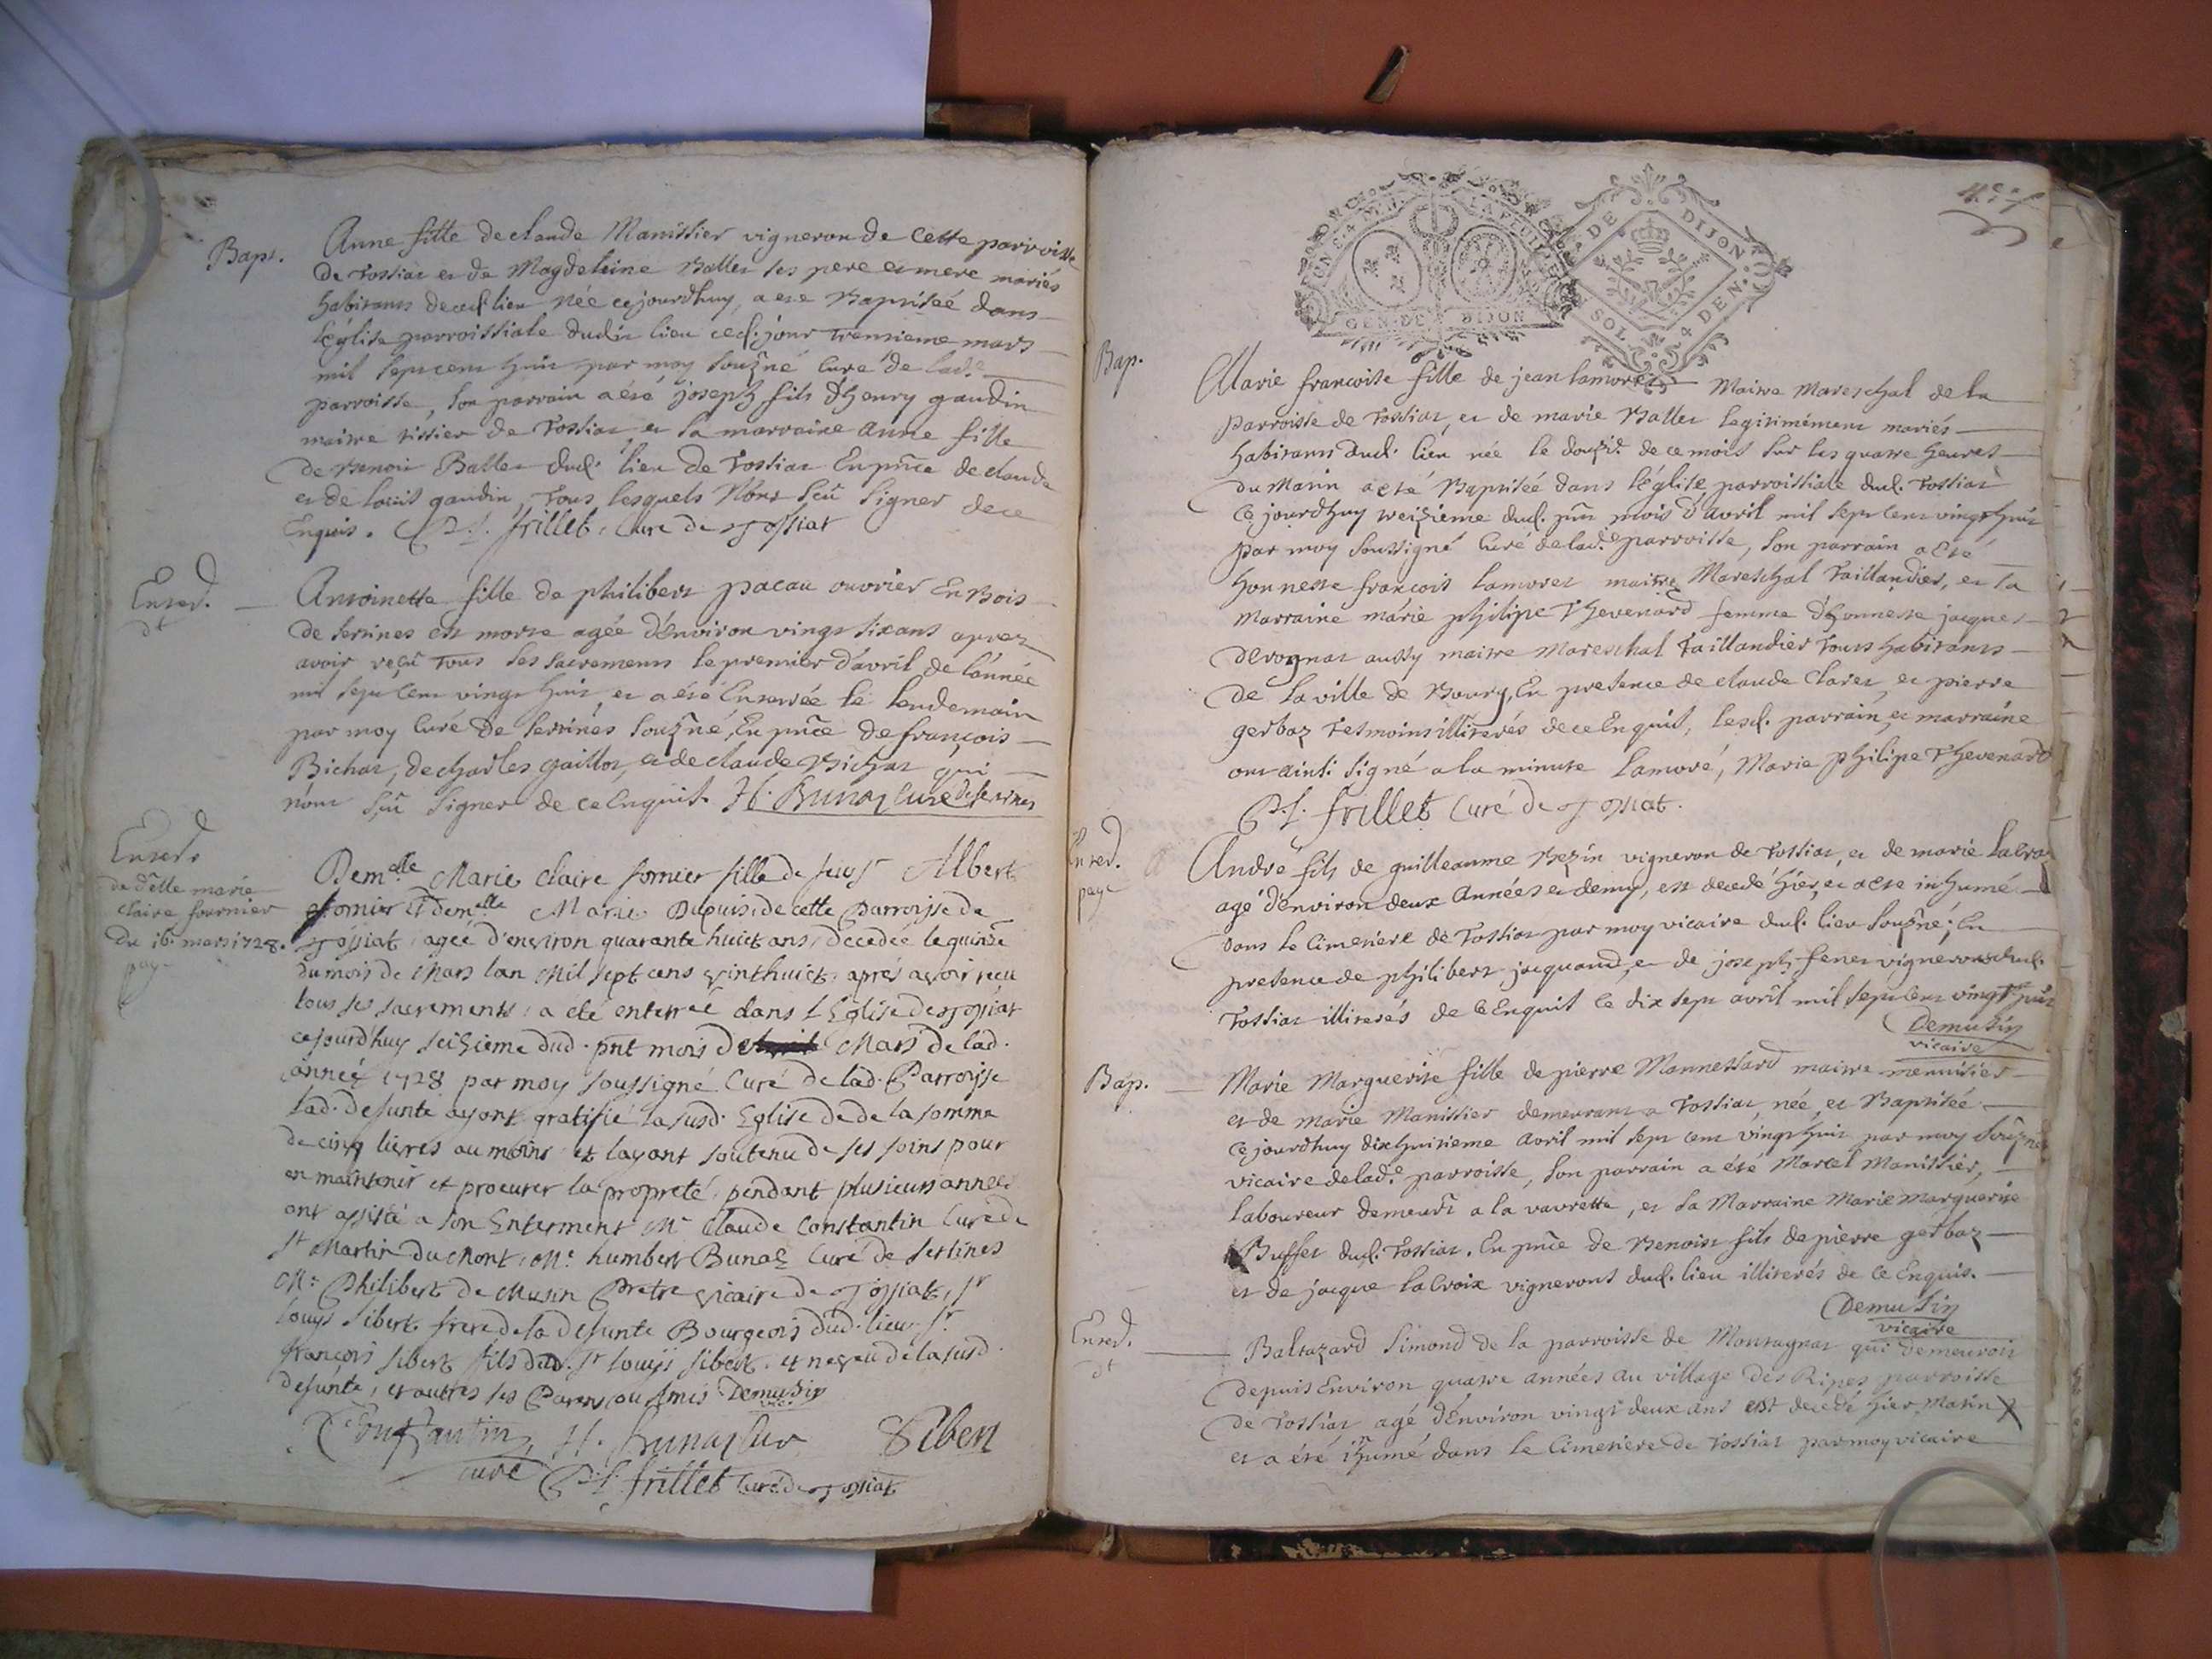 Bapt.
Anne fille de claude Manissier vigneron de Cette parroisse
de Tossiat et de Magdeleine Ballet ses pere et mere mariés
habitants decedt lieu née cejourdhuy, a été Baptisée dans
l'église parroissiale dudit lieu ced. jour trentieme mars
mil sept cent huit par moy souzné Curé de lad.e
parroisse, son parrain a été joseph fils d'henry gaudin
maitre tissier de Tossiat et sa marraine anne fille
de Benoit Ballet dud. lieu de Tossiat En pnce de claude
et de louis gaudin, Tous lesquels N'ont sçû signer de ce
Enquis. P.f. frillet, Curé de Tossiat
Enterd.
dt
Antoinette fille de philibert pacau ouvrier En Bois
de serrines est morte agée d'Environ vingt six ans apres
avoir reçû tous ses sacrements le premier d'avril de l'année
mil sept cent vingt huit et a été Enterrée le lendemain
par moy Curé de serrines souzné, En pnce de françois
Bichat, de charles gaillot, et de claude Bichat qui
n'ont sçû signer de ce Enquit. H. Bunaz Curé de serrines
Enterd.
de delle marie
claire fournier
du 16 mars 1728.
payé
Dem.elle Marie Claire fornier fille de feu Sr Albert
fornier et dem.elle Marie Dupuis, de cette Parroisse de
Tossiat, agée d'environ quarante huict ans, decedée le quinze
du mois de Mars l'an Mil sept cens vint huict, aprés avoir receu
tous ses sacrements, a eté enterreé dans l'Eglise de Tossiat
cejourd'huy seizieme dud. pnt mois de Mars de lad.
année 1728 par moy soussigné Curé de lad. Parroisse
lad. defunte ayant gratifié la susd. Eglise de de la somme
de cinq livres au moins et l'ayant soutenu de ses soins pour
en maintenir et procurer la propreté, pendant plusieurs années
ont assisté a son Enterment Mr Claude Constantin Curé de
St Martin du Mont, Mr humbert Bunaz Curé de serrines
Mr Philibert de Musin Pretre vicaire de Tossiat, Sr
louys sibert frere de la defunte Bourgeois dud. lieu. Sr.
françois sibert fils dud. Sr louys sibert, et neveu de la susd.
defunte, et autres ses Parens ou Amis Demusin
vic.
Constantin, H. Bunaz Cur Sibert
curé P.f. frillet Curé de Tossiat
UN C. 4 M. N. LA FEUILLE
GEN. DE DIJON
G. DE DIJON
UN SOL. 4 DEN.
Bap.
Marie francoise fille de jean lamoret Maitre Mareschal de la
parroisse de Tossiat, et de marie Ballet legitimément mariés
habitants dud. lieu née le douzie. de ce mois sur les quatre heures
du Matin a eté Baptisée dans l'église parroissiale dud. Tossiat
Ce jourdhuy treizieme dud. pnt mois d'avril mil sept cent vingt huit
par moy soussigné Curé de lad.e parroisse, son parrain a Eté
honneste françois lamoret maitre Mareschal Taillandier, et sa
marraine marie philipe Thevenard femme d'honneste jacques
derognat aussy maitre Mareschal Taillandier Tous habitants
de la ville de Bourg, En presence de claude Claret et pierre
gerbaz tesmoins illiterés de ce Enquit, lesd. parrain et marraine
ont ainsi signé a la minute lamoré, Marie philipe Thevenard
P.f. frillet Curé de Tossiat.
Enterd.
payé
André fils de guilleaume Bezin vigneron de Tossiat, et de marie lacroi
agé d'environ deux Années et demy, est decedé hier, et a eté inhumé
dans le Cimetiere de Tossiat par moy vicaire dud. lieu souzné; En
presence de philibert jacquand, et de joseph fenet vignerons dud.
Tossiat illiterés de Ce Enquit Ce dix sept avril mil sept cent vingt huit
Demusin
vicaire
Bap.
Marie Marguerite fille de pierre Mannessard maitre menuisier
et de marie Manissier demeurant a Tossiat, née et Baptisée
Ce jourdhuy dix huitieme avril mil sept cent vingt huit par moy souzné
vicaire de lad.e parroisse, son parrain a été Marcel Manissier,
laboureur demeurt a la vavrette, et sa Marraine Marie Marguerite
Buffet dud. Tossiat. En pnce de Benoist fils de pierre gerbaz
et de jacque lacroix vignerons dud. lieu illiterés de Ce Enquis.
Demusin
vicaire
Enterd.
dt
Baltazard Simond de la parroisse de Montagnat qui demeuroit
depuis Environ quatre années au village des Ripes parroisse
de Tossiat, agé d'Environ vingt deux ans est decedé hier Matin
et a été ihumé dans le Cimetiere de Tossiat par moy vicaire